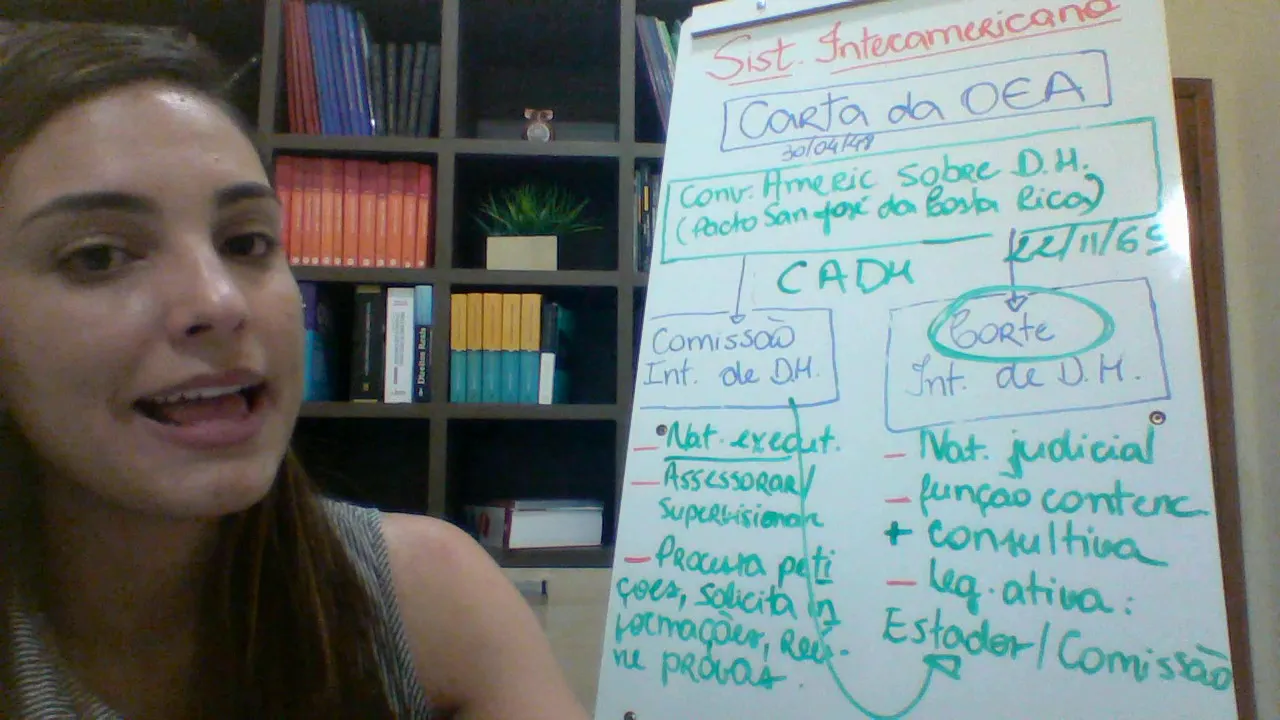 Sist. Interamericano
Carta da OEA
30/04/48
Conv. Americ sobre D.H.
(Pacto San José da Costa Rica)
22/11/69
CADH
Comissão
Int. de D.H.
Corte
Int. de D.H.
- Nat. execut.
- Assessorar/
supervisionar
- Processa peti
ções, solicita in
formações, reú-
ne provas
- Nat. judicial
- função contenc
+ consultiva
- Leg. ativa:
Estados/Comissão
Direitos Reais